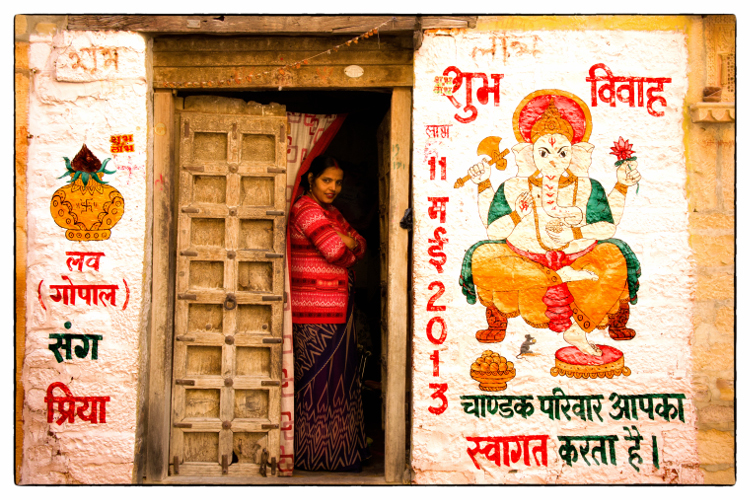 शुभ
शुभ
लाभ
लव
(गोपाल)
संग
प्रिया
लाभ
शुभ विवाह
लाभ
11
मई
2013
चाण्डक परिवार आपका
स्वागत करता है।